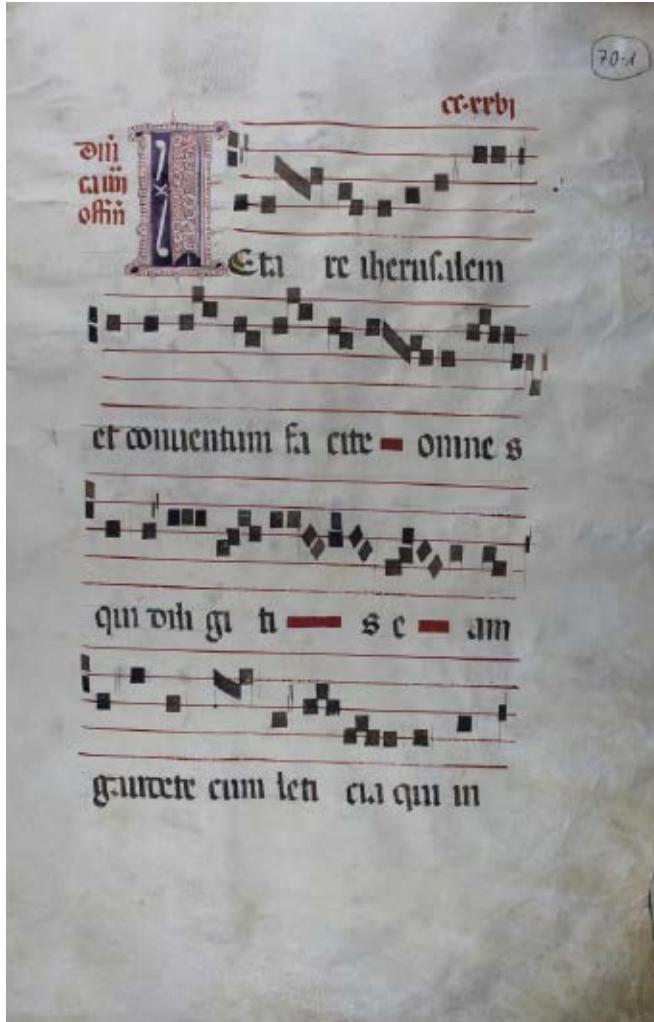 70-1
cc·xxvj
Leta re iherusalem
et conuentum fa cite omne s
qui dili gi ti s e am
gaudete cum leti cia qui in